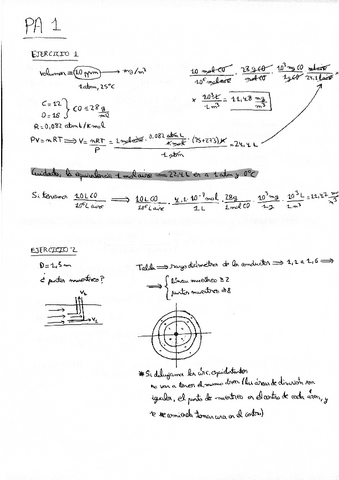 PA 1
EJERCICIO 1
Volumen = 10 ppm → mg/m³
1 atm, 25°C
10 mol CO / 10⁶ mol aire · 28 g CO / mol CO · 10³ mg CO / 1 g CO · mol aire / 24,4 L aire
C = 12
O = 16 } CO = 28 g/mol
× 10³ L / 1 m³ = 11,48 mg/m³
R = 0,082 atm L / K mol
PV = nRT ⇒ V = nRT / P = 1 mol · 0,082 atm L / K mol · (25+273) K / 1 atm = 24,4 L
Cuidado, la equivalencia 1 mol aire = 22,4 L es a 1 atm y 0°C
Si tenemos 10 L CO / 10⁶ L aire ⇒ 10 L CO / 10⁶ L aire · mol / 1 L · 28 g / 1 mol CO · 10³ mg / 1 g · 10³ L / 1 m³ = mg/m³
EJERCICIO 2
D = 1,5 m
¿ puntos muestreo?
Tabla ⇒ rango diámetros de la conductos ⇒ 1,1 a 1,6 ⇒
⇒ { líneas muestreo = 2
puntos muestreo = 8
* Si dibujamos las circ. equidistantes
no van a tener el mismo área (las áreas de división son
iguales, el punto de muestreo es el centro de cada área, y
se recomienda tomar una en el centro)